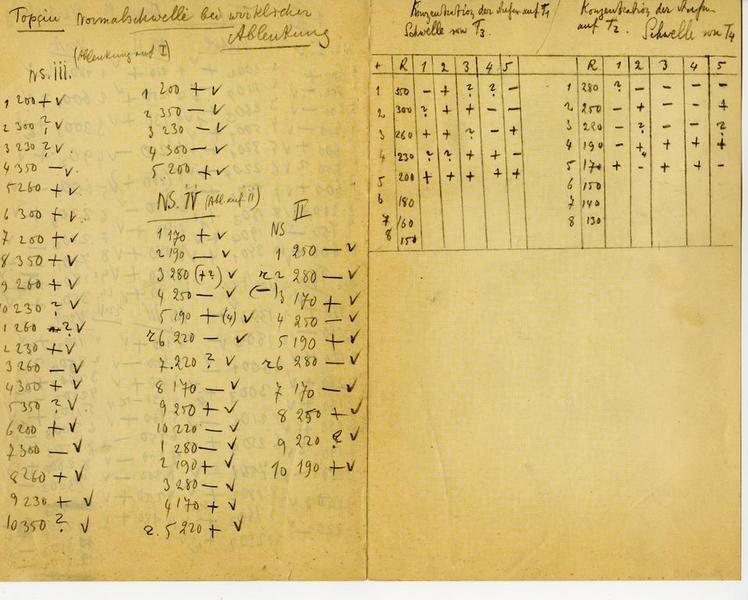 Topciu Normalschwelle bei wirklicher
Ablenkung
(Ablenkung auf I)
NS. iii.
1 200 + √
2 300 ? √
3 230 ? √
4 350 — √
5 260 + √
6 300 + √
7 200 + √
8 350 + √
9 260 + √
10 230 ? √
1 260 ? √
2 230 + √
3 260 — √
4 300 + √
5 350 ? √
6 200 + √
7 300 — √
8 260 + √
9 230 + √
10 350 ? √
1 200 + √
2 350 — √
3 230 — √
4 300 — √
5 200 + √
NS. IV (Abl. auf ii)
1 170 + √
2 190 — √
3 280 (+?) √
4 250 — √
5 190 + (4) √
r 6 220 — √
7 220 ? √
8 170 — √
9 250 + √
10 220 — √
1 280 — √
2 190 + √
3 280 — √
4 170 + √
r. 5 220 + √
II
NS
1 250 — √
r 2 280 — √
(—) 3 170 + √
4 250 — √
5 190 + √
r 6 280 — √
7 170 — √
8 250 + √
9 220 ? √
10 190 + √
Konzentration der Aufm. auf T1
Schwelle von T3.
+ R 1 2 3 4 5
1 350 — + ? ? —
2 300 ? + — + —
3 260 + + ? — +
4 230 ? ? + + —
5 200 + + + + +
6 180
7 160
8 150
Konzentration der Aufm.
auf T2. Schwelle von T4
R 1 2 3 4 5
1 280 ? — — — —
2 250 — + — — +
3 220 — ? — — ?
4 190 — + + + +
5 170 + - + + -
6 150
7 140
8 130